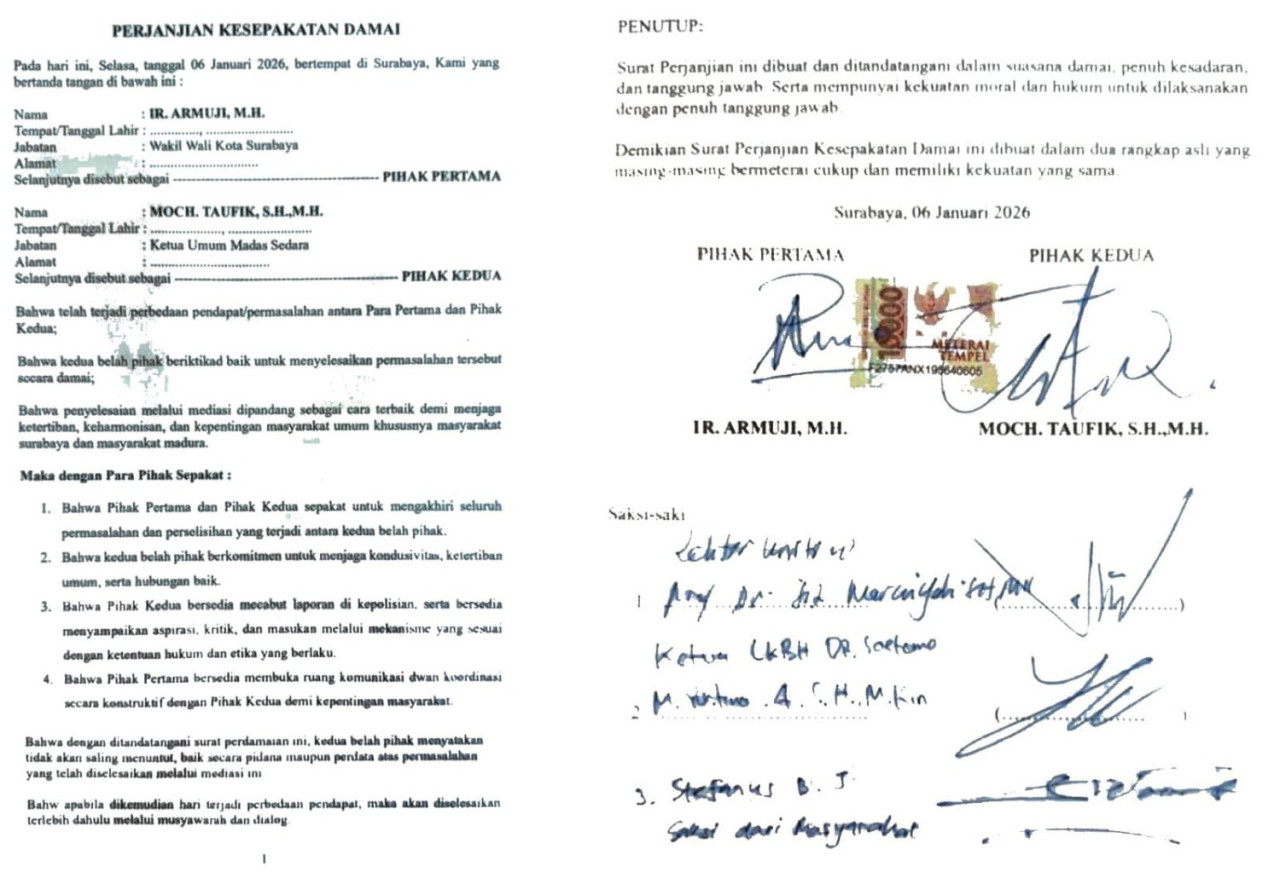 PERJANJIAN KESEPAKATAN DAMAI
Pada hari ini, Selasa, tanggal 06 Januari 2026, bertempat di Surabaya, Kami yang
bertanda tangan di bawah ini :
Nama : IR. ARMUJI, M.H.
Tempat/Tanggal Lahir : .............., ........................
Jabatan : Wakil Wali Kota Surabaya
Alamat : .............................
Selanjutnya disebut sebagai ---------------------------------------- PIHAK PERTAMA
Nama : MOCH. TAUFIK, S.H.,M.H.
Tempat/Tanggal Lahir : ...................., .......................
Jabatan : Ketua Umum Madas Sedara
Alamat : ................................
Selanjutnya disebut sebagai ------------------------------------------- PIHAK KEDUA
Bahwa telah terjadi perbedaan pendapat/permasalahan antara Para Pertama dan Pihak
Kedua;
Bahwa kedua belah pihak beriktikad baik untuk menyelesaikan permasalahan tersebut
secara damai;
Bahwa penyelesaian melalui mediasi dipandang sebagai cara terbaik demi menjaga
ketertiban, keharmonisan, dan kepentingan masyarakat umum khususnya masyarakat
surabaya dan masyarakat madura.
Maka dengan Para Pihak Sepakat :
1. Bahwa Pihak Pertama dan Pihak Kedua sepakat untuk mengakhiri seluruh
permasalahan dan perselisihan yang terjadi antara kedua belah pihak.
2. Bahwa kedua belah pihak berkomitmen untuk menjaga kondusivitas, ketertiban
umum, serta hubungan baik.
3. Bahwa Pihak Kedua bersedia mecabut laporan di kepolisian, serta bersedia
menyampaikan aspirasi, kritik, dan masukan melalui mekanisme yang sesuai
dengan ketentuan hukum dan etika yang berlaku.
4. Bahwa Pihak Pertama bersedia membuka ruang komunikasi dwan koordinasi
secara konstruktif dengan Pihak Kedua demi kepentingan masyarakat.
Bahwa dengan ditandatangani surat perdamaian ini, kedua belah pihak menyatakan
tidak akan saling menuntut, baik secara pidana maupun perdata atas permasalahan
yang telah diselesaikan melalui mediasi ini
Bahw apabila dikemudian hari terjadi perbedaan pendapat, maka akan diselesaikan
terlebih dahulu melalui musyawarah dan dialog.
1
PENUTUP:
Surat Perjanjian ini dibuat dan ditandatangani dalam suasana damai, penuh kesadaran,
dan tanggung jawab. Serta mempunyai kekuatan moral dan hukum untuk dilaksanakan
dengan penuh tanggung jawab.
Demikian Surat Perjanjian Kesepakatan Damai ini dibuat dalam dua rangkap asli yang
masing-masing bermeterai cukup dan memiliki kekuatan yang sama.
Surabaya, 06 Januari 2026
PIHAK PERTAMA PIHAK KEDUA
10000
METERAI
TEMPEL
IR. ARMUJI, M.H. MOCH. TAUFIK, S.H.,M.H.
Saksi-saki
1 Prof Dr. Siti
Ketua LKBH DR. Soetomo
2 M. A. S.H., M.Kn
3. Stefanus B. J
Saksi dari Masyarakat